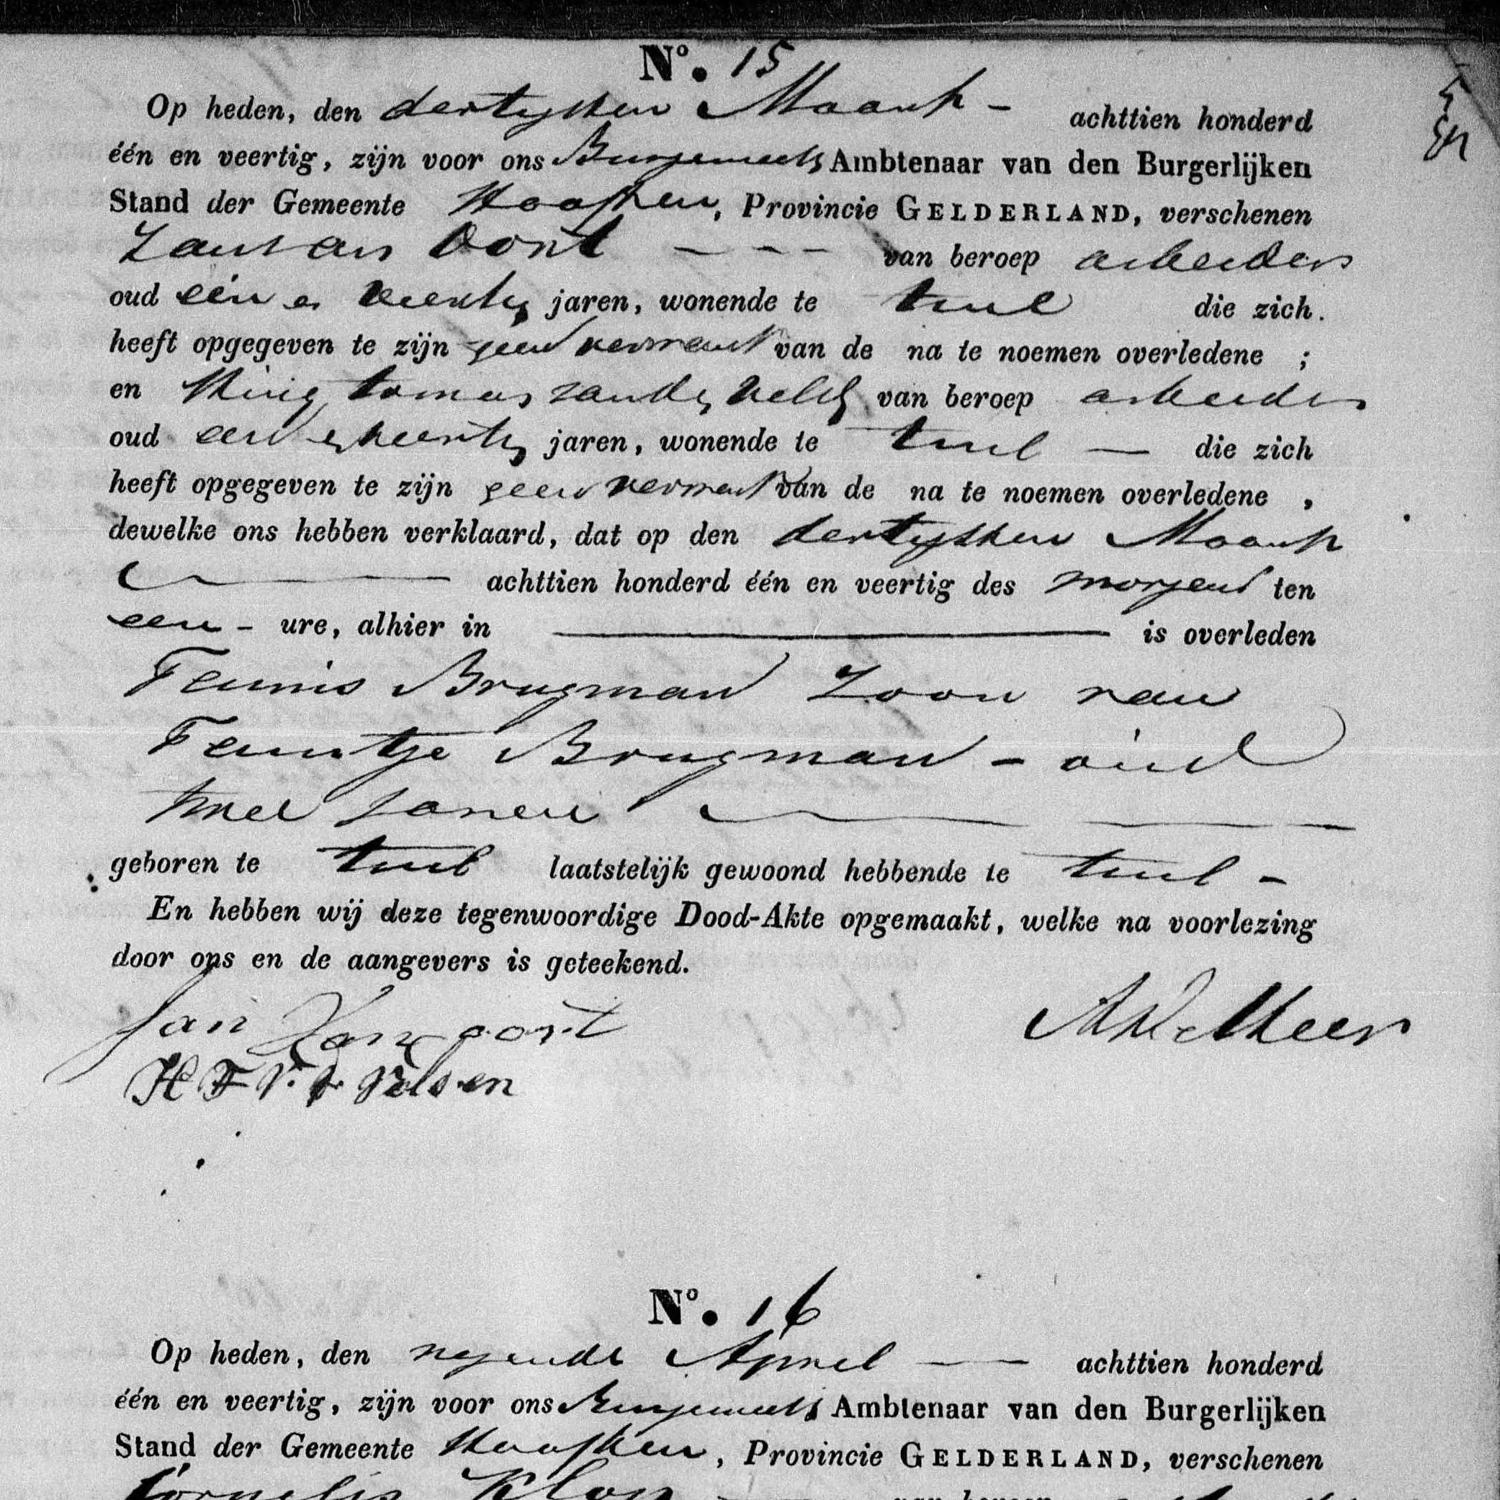 N.º 15
Op heden, den dertigsten Maart - achttien honderd
één en veertig, zijn voor ons Burgemeester Ambtenaar van den Burgerlijken
Stand der Gemeente Haaften, Provincie GELDERLAND, verschenen
Jan van Oort - - - van beroep arbeider
oud een en veertig jaren, wonende te tuil die zich.
heeft opgegeven te zijn geen vermant van de na te noemen overledene ;
en tomas van de van beroep arbeider
oud een en veertig jaren, wonende te tuil — die zich
heeft opgegeven te zijn geen vermant van de na te noemen overledene ,
dewelke ons hebben verklaard, dat op den dertigsten Maart
— achttien honderd één en veertig des morgens ten
een - ure, alhier in — is overleden
Teunis Brugman Zoon van
Teuntje Brugman - oud
twee Jaren —
geboren te tuil laatstelijk gewoond hebbende te tuil -
En hebben wij deze tegenwoordige Dood-Akte opgemaakt, welke na voorlezing
door ons en de aangevers is geteekend.
Jan Van oort
H T V. d Velden
N.º 16
Op heden, den negende April — achttien honderd
één en veertig, zijn voor ons Burgemeester Ambtenaar van den Burgerlijken
Stand der Gemeente Haaften, Provincie GELDERLAND, verschenen
Cornelis Klop van beroep